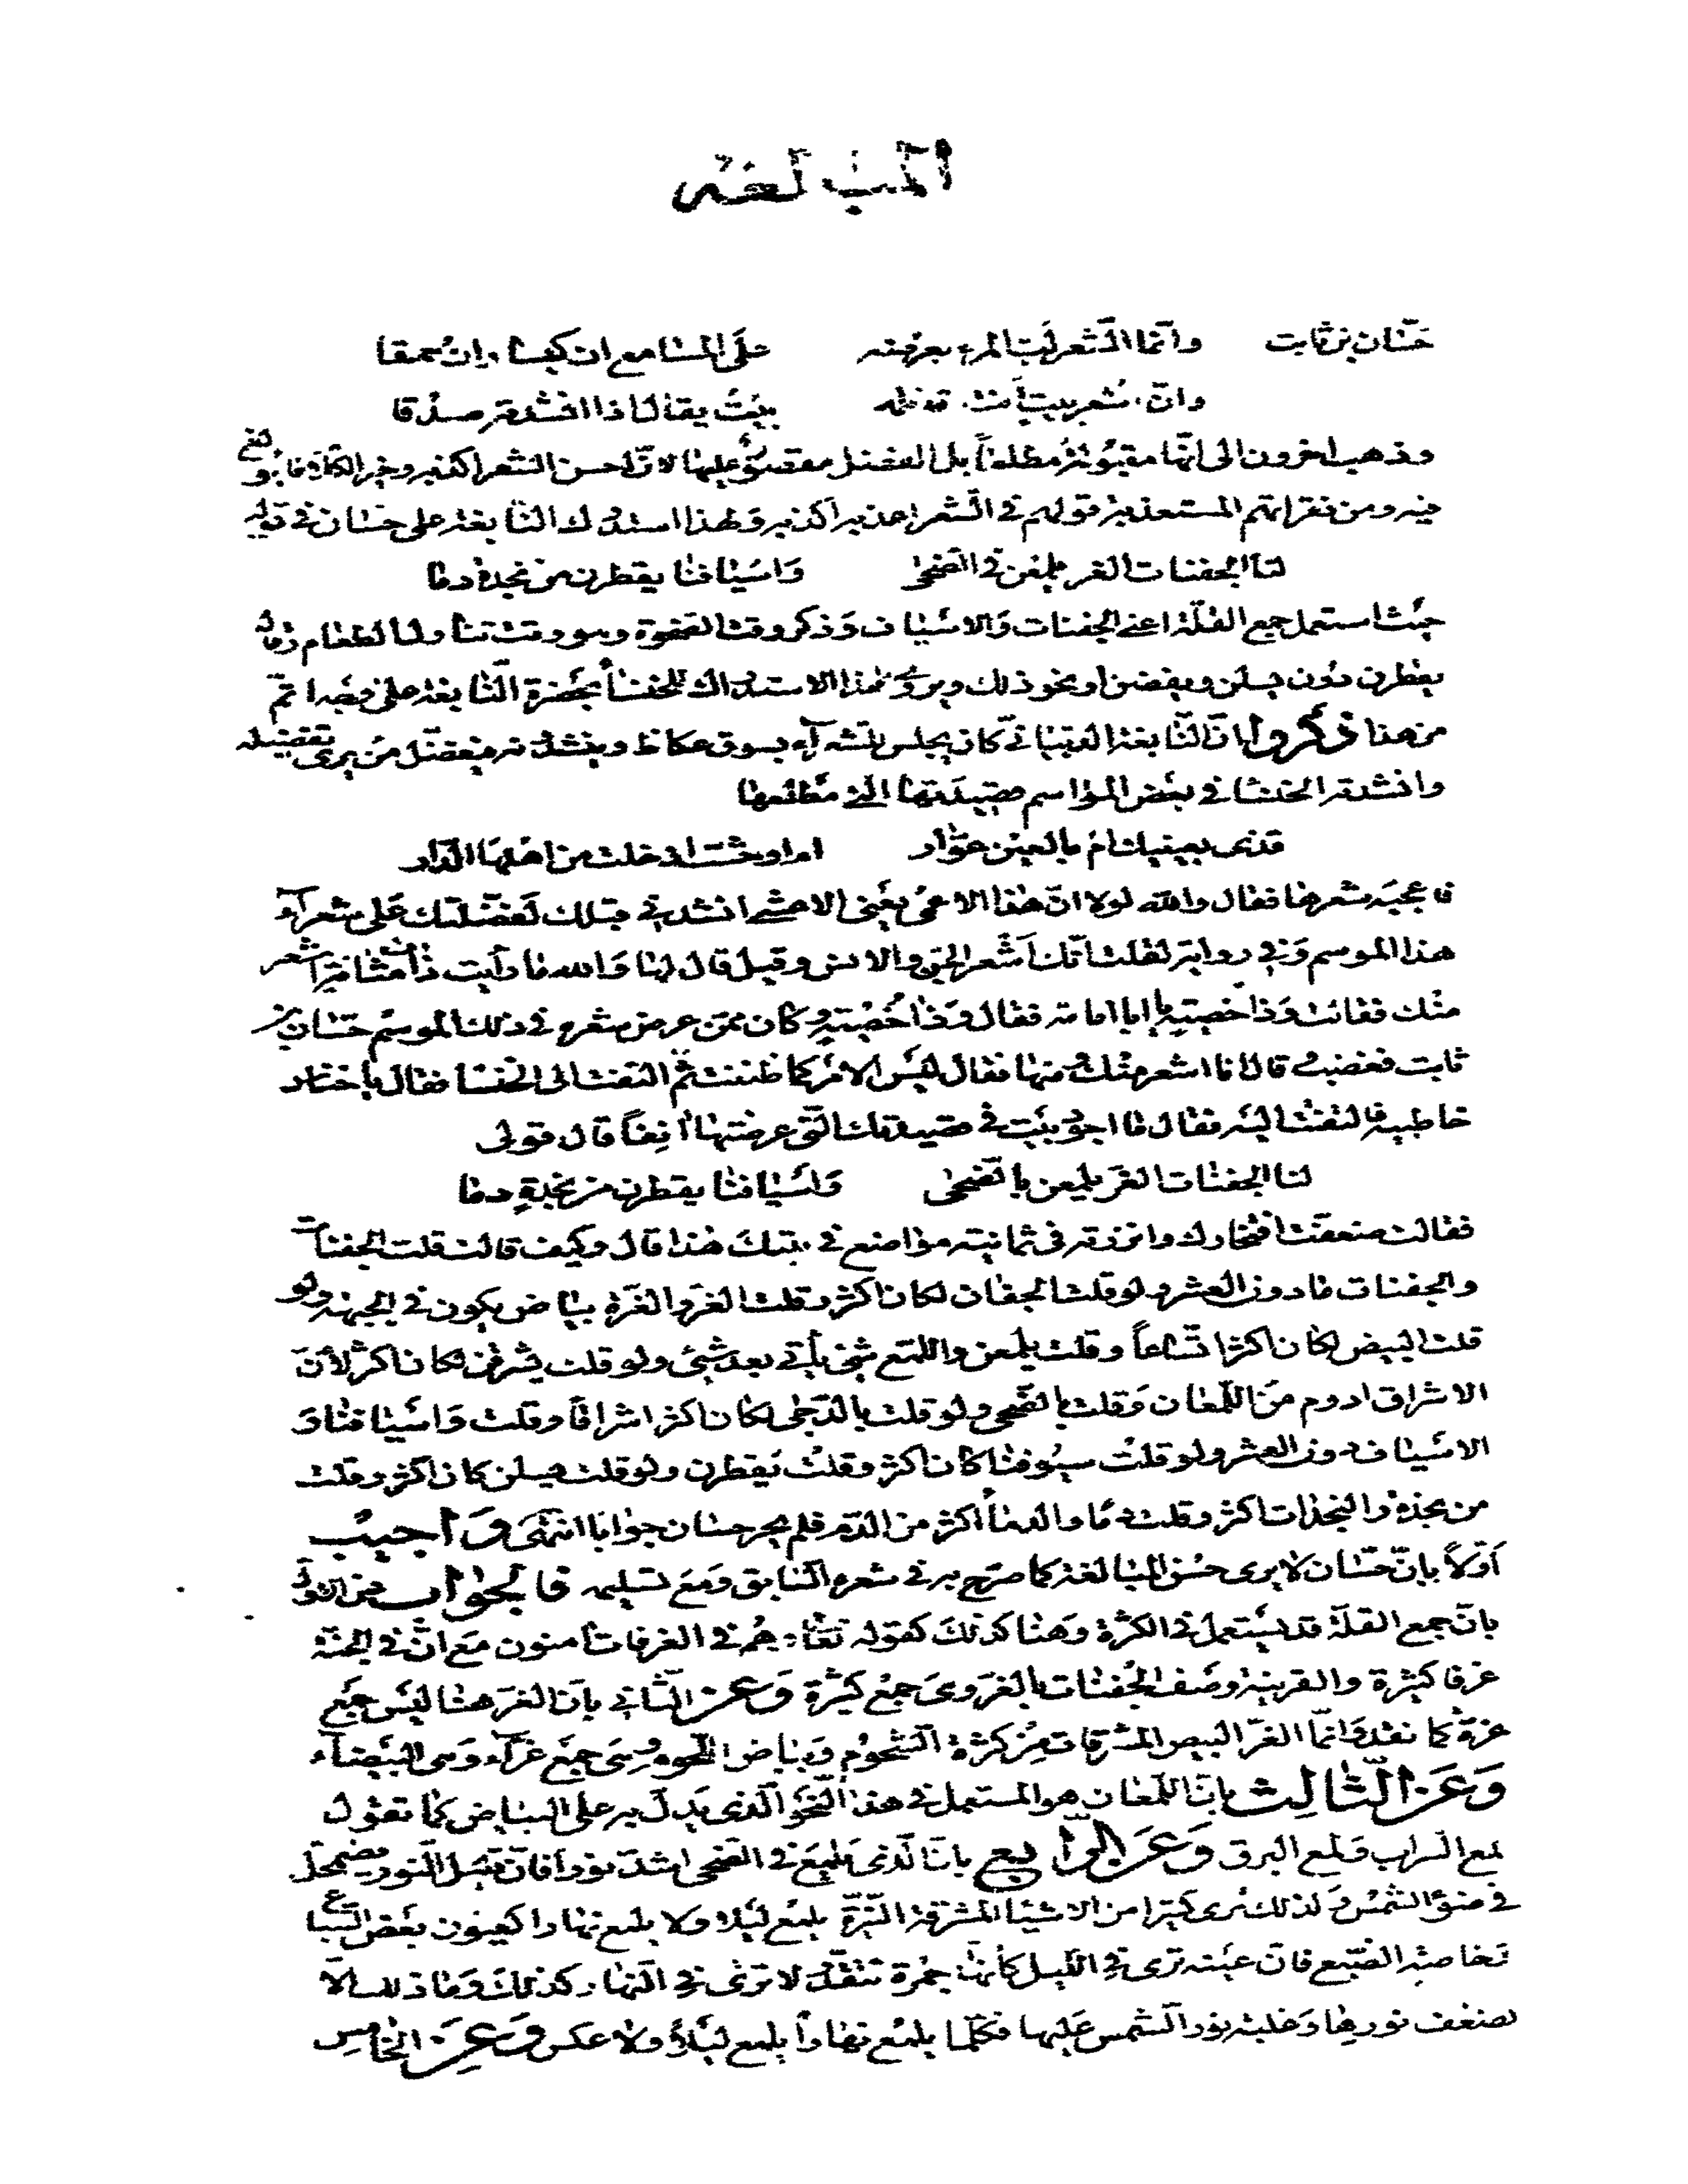 المبالغة
حسّان بن ثابت وانّما الشعر لبّ المرء يعرضه على المسامع ان كيسا وان حمقا
وانّ اشعر بيت أنت قائله بيتٌ يقال اذا انشدته صدقا
وذهب اخرون الى انّها مقبولة مطلقاً بل الفضل مقصورٌ عليها لانّ احسن الشعر اكذبه وخير الكلام ما بولغ
فيه ومن فقراتهم المستعذبة قولهم في الشعر اعذبه اكذبه وَلهذا استدرك النّابغة على حسّان في قوله
لنا الجفنات الغر يلمعن في الضحى وَاسيَافنا يقطرن من نجدة دما
حيث استعمل جمع القلّة اعني الجفنات وَالاسيَاف وَذكر وقت الضحوة وهو وقت تناول الطعام وقال
يقطرن دون يسلن ويفضن او نحو ذلك ويروى هذا الاستدراك للخنسأ بحَضرة النّابغة على وجه اتمّ
من هذا ذكروا انّ النّابغة الذبيانيّ كان يجلس للشعرآء بسوق عكاظ وينشدونه فيفضّل من يرى تفضيله
وانشدته الخنسا في بعَض المواسم قصيدَتها التي مطلعها
قذى بعينيك ام بالعين عوّار ام اوحشت اذ خلت من اهلهَا الدّار
فاعجبَه شعرها فقال والله لولا انّ هذا الاعمى يعَني الاعشى انشدني قبلك لَفضّلتك عَلى شعرآء
هذا الموسم وَفي رواية لقلت انّك اَشعر الجنّ والانس وقيل قال لها وَالله ما رأيت ذات مثانة اشعر
منك فقالت وَذا خصيتين يا ابا امامة فقال وَذا خُصْيتين وكان ممّن عرض شعره في ذلك الموسم حسّان بن
ثابت فغضب قال انا اشعر منْك ومنها فقال ليَس الامر كما ظننت ثم التفت الى الخنسا فقال يا خناس
خاطبيه فالتفتت اليَه فقال ما اجود بيَت في قصيدتك التي عرضتها آنِفاً قال قولى
لنا الجفنَات الغرّ يلمعن بالضّحى وَاسيَافنا يقطرن من نجدةٍ دما
فقالت ضعفت افتخارك وانزرته في ثمانية مواضع في بيتكَ هذا قال وكيف قالت قلت الجفنات
والجفنات ما دون العشر ولو قلت الجفان لكان اكثر وقلت الغر والغرّة بيَاض يكون في الجبهة ولو
قلت البيض لكان اكثر اتّساعاً وقلت يلمعن واللمع شئ يأتي بعد شئ ولو قلت يشرقن لكان اكثر لأنّ
الاشراق ادوم منَ اللّمعان وَقلت بالضّحى ولو قلت بالدّجى لكان اكثر اشراقاً وقلت وَاسيَافنا وَ
الاسيَاف دون العشر ولو قلت سيُوفنا كان اكثر وقلتُ يَقطرن ولو قلت يسلن كان اكثر وقلت
من نجدة والنجدات اكثر وقلت دمًا والدمأ اكثر من الدّم فلم يحر حسان جوابا انتهى وَاُجيبُ
اَوّلاً بانّ حسّان لا يرى حسْن المبَالغة كما صرّح به في شعره السّابق وَمَعَ تسليمه فالجوابُ عن الاوّل
بانّ جمع القلّة قد يستعمل في الكثرة وَهنا كذلكَ كقوله تعَالى وهُم في الغرفات آمنون مَع انّ في الجنّة
غرفا كثيرة والقرينة وصَف الجفنَات بالغر وهى جمع كثرة وَعن الثّاني بانّ الغرّ هنا ليَس جمَع
غرّة كما نقله وَانمّا الغرّ البيض المشرقات من كثرة الشّحوم وَبيَاض اللّحوم وهي جمَع غرآء وَهى البيَضآء
وَعَن الثّالِث بانّ اللّمعَان هو المستعمل في هذا النّحَو الّذى يَدلّ به على البيَاض كما تقول
لمع السراب وَلمع البرق وَعَن الرّابع بانّ الّذى يَلمع في الضّحى اشدّ نوراً فانّ قليَل النّور يضمحلّ
في ضوءَ الشّمسْ وَلذلك نرى كثيرا من الاشيَا المشرقة النيّرة يلمع ليَلا ولا يلمع نهارا كعيون بعَض السّباع
لخاصة الضّبع فانّ عينَه ترى في الليل كأنها جمرة تتقدّ لا ترى في النّهار كذلكَ وَمَا ذلك الاّ
لضعف نورها وَغلبة نور الشّمس عَليها فكلّما يلمع نهاراً يلمع ليَلاً ولا عكس وَعَن الخامِس